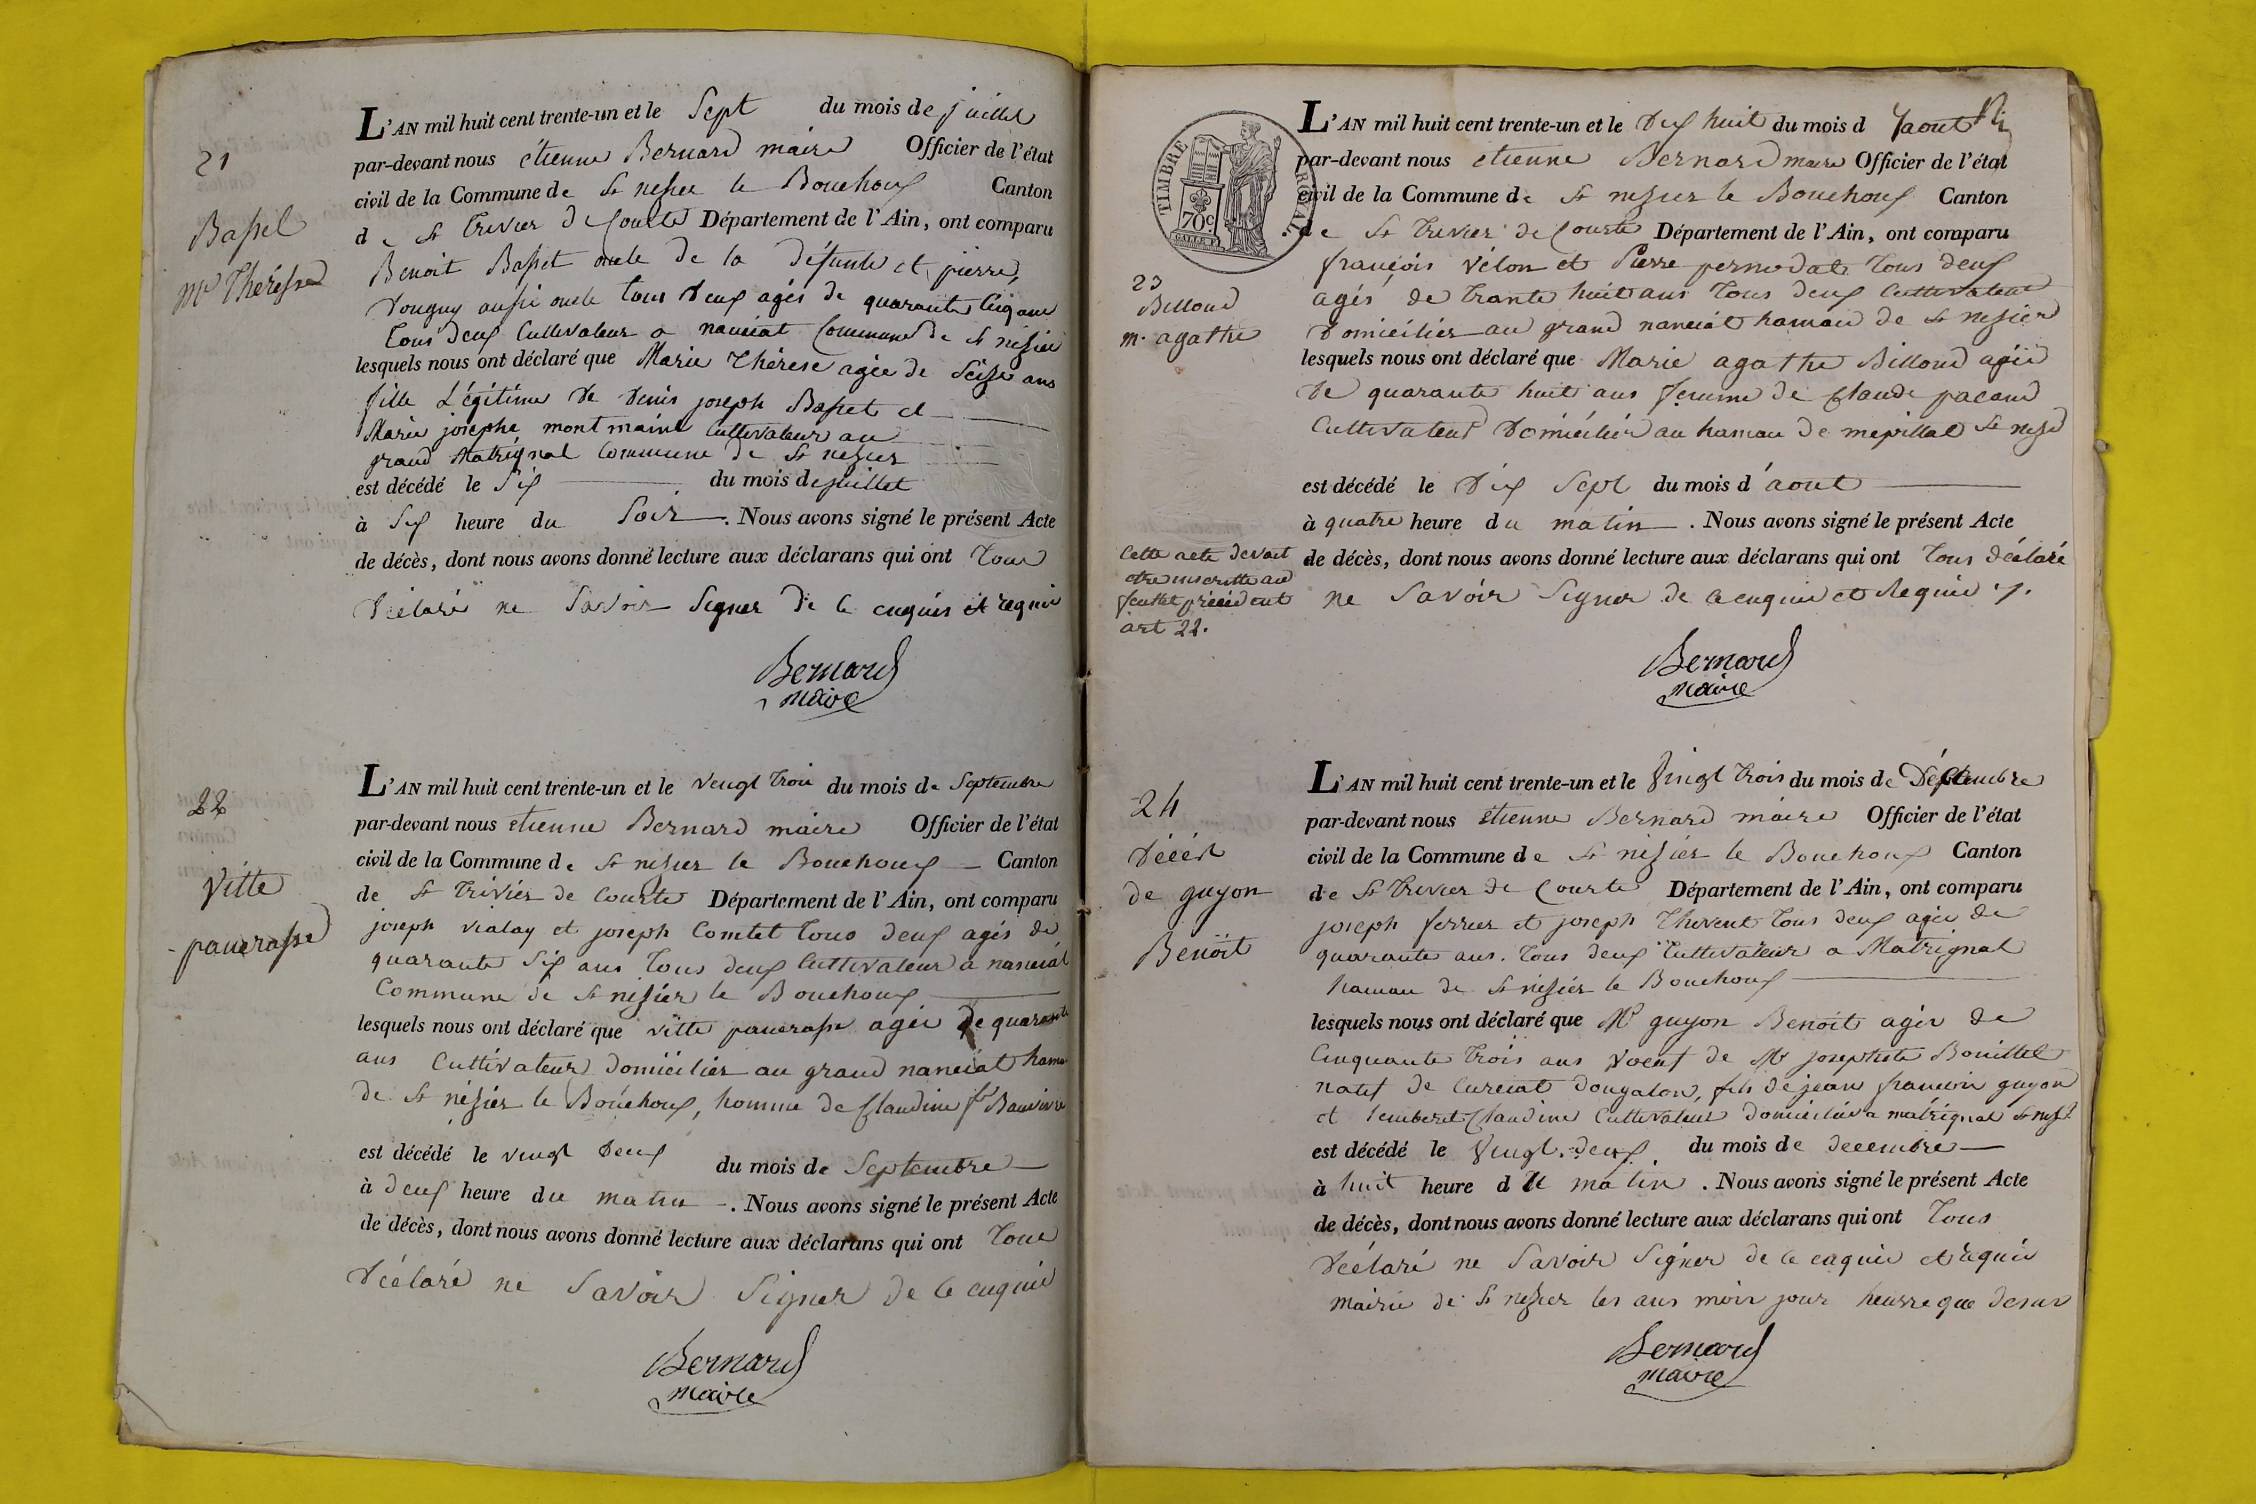 21
Basset
Mie Thérèse
L'AN mil huit cent trente-un et le Sept du mois de juillet
par-devant nous étienne Bernard maire Officier de l'état
civil de la Commune de St nesier le Bouchoux Canton
de St Trivier de Courte Département de l'Ain, ont comparu
Benoit Basset oncle de la défunte et pierre
Dougny aussi oncle tous deux agés de quarante cinq ans
tous deux Cultivateur a nanciat Commune de St nesier
lesquels nous ont déclaré que Marie Thérèse agée de Seize ans
fille Légitime de denis joseph Basset et
Marie josephe montmain Cultivateur au
grand Matrignat Commune de St nesier
est décédé le Six du mois de juillet
à Six heure du Soir. Nous avons signé le présent Acte
de décès, dont nous avons donné lecture aux déclarans qui ont tous
déclaré ne Savoir Signer de ce enquis et requis
Bernard
maire
22
Vitte
pancrasse
L'AN mil huit cent trente-un et le vengt trois du mois de Septembre
par-devant nous etienne Bernard maire Officier de l'état
civil de la Commune de St nesier le Bouchoux Canton
de St Trivier de Courte Département de l'Ain, ont comparu
joseph vialay et joseph Comtet tous deux agés de
quarante Six ans tous deux Cultivateur a nanciat
Commune de St nesier le Bouchoux
lesquels nous ont déclaré que vitte pancrasse agée de quarante
ans Cultivateur domicilier au grand nanciat hamau
de St nesier le Bouchoux, homme de Claudine
est décédé le vengt deux du mois de Septembre
à deux heure du matin. Nous avons signé le présent Acte
de décès, dont nous avons donné lecture aux déclarans qui ont tous
déclaré ne Savoir Signer de ce enquis
Bernard
maire
TIMBRE ROYAL.
70c
23
Billoud
m. agathe
L'AN mil huit cent trente-un et le dix huit du mois d'aout
par-devant nous etienne Bernard maire Officier de l'état
civil de la Commune de St nesier le Bouchoux Canton
de St Trivier de Courte Département de l'Ain, ont comparu
françois vélon et Pierre pernodat tous deux
agés de trante huit ans tous deux Cultivateur
domicilier au grand nanciat hamau de St nesier
lesquels nous ont déclaré que Marie agathe Billoud agée
de quarante huit ans femme de Claude pacaud
Cultivateur domicilier au hamau de mepillat St nesier
est décédé le dix Sept du mois d'aout
à quatre heure du matin. Nous avons signé le présent Acte
Cette acte devait
etre inscritte au
feuillet précédent
art 22.
de décès, dont nous avons donné lecture aux déclarans qui ont tous déclaré
ne Savoir Signer de ce enquis et Requis ./.
Bernard
maire
24
décés
de guyon
Benoit
L'AN mil huit cent trente-un et le Vingt trois du mois de Décembre
par-devant nous etienne Bernard maire Officier de l'état
civil de la Commune de St nesier le Bouchoux Canton
de St Trivier de Courte Département de l'Ain, ont comparu
joseph ferrier et joseph Thevent tous deux agés de
quarante ans. tous deux Cultivateur a Matrignat
hamau de St nesier le Bouchoux
lesquels nous ont déclaré que Mr guyon Benoit agée de
Cinquante trois ans voeuf de Mie josephete Bouillet
natif de Curciat dongalon, fils de jean francois guyon
et Claudine Cultivateur domicilier a matrignat St nesier
est décédé le Vengt deux du mois de decembre
à huit heure du matin. Nous avons signé le présent Acte
de décès, dont nous avons donné lecture aux déclarans qui ont tous
déclaré ne Savoir Signer de ce enquis et requis
mairie de St nesier les ans mois jour heurre que desus
Bernard
maire